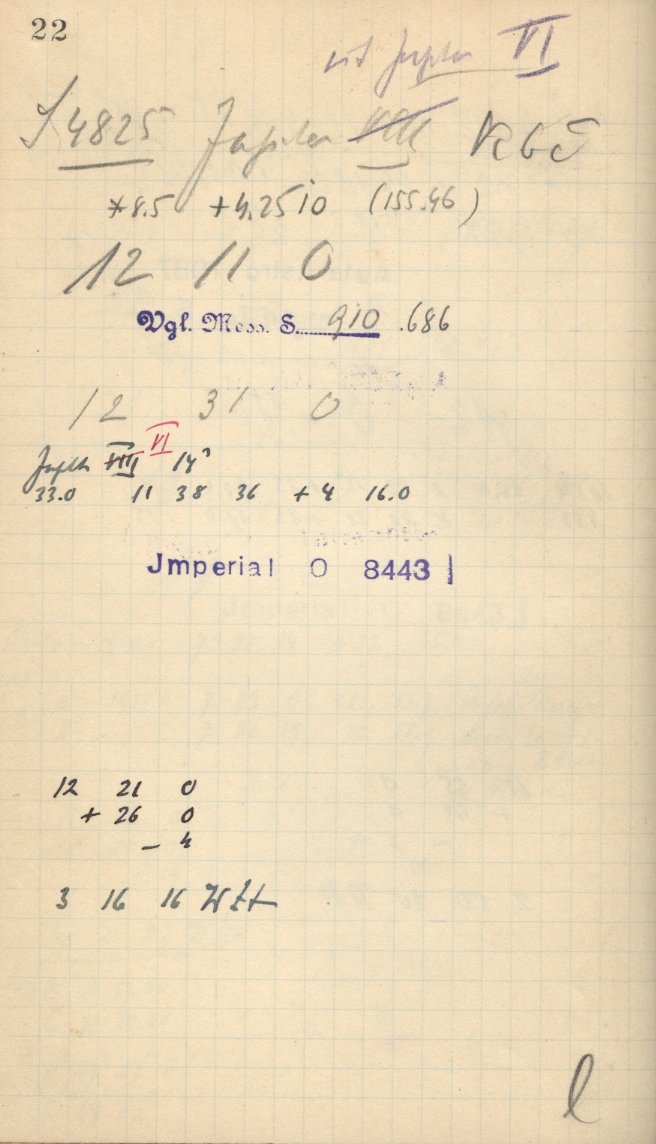 22
ist Jupiter VI
S 4825 Jupiter VIII
*8.5 +4.2510 (155.46)
12 11 0
Vgl. Mess. S. 910 .686
12 31 0
VI
Jupiter VIII 14
33.0 11 38 36 + 4 16.0
Jmperial O 8443
12 21 0
+ 26 0
- 4
3 16 16
l